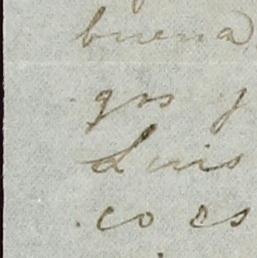 buena
gos y
Luis
co es